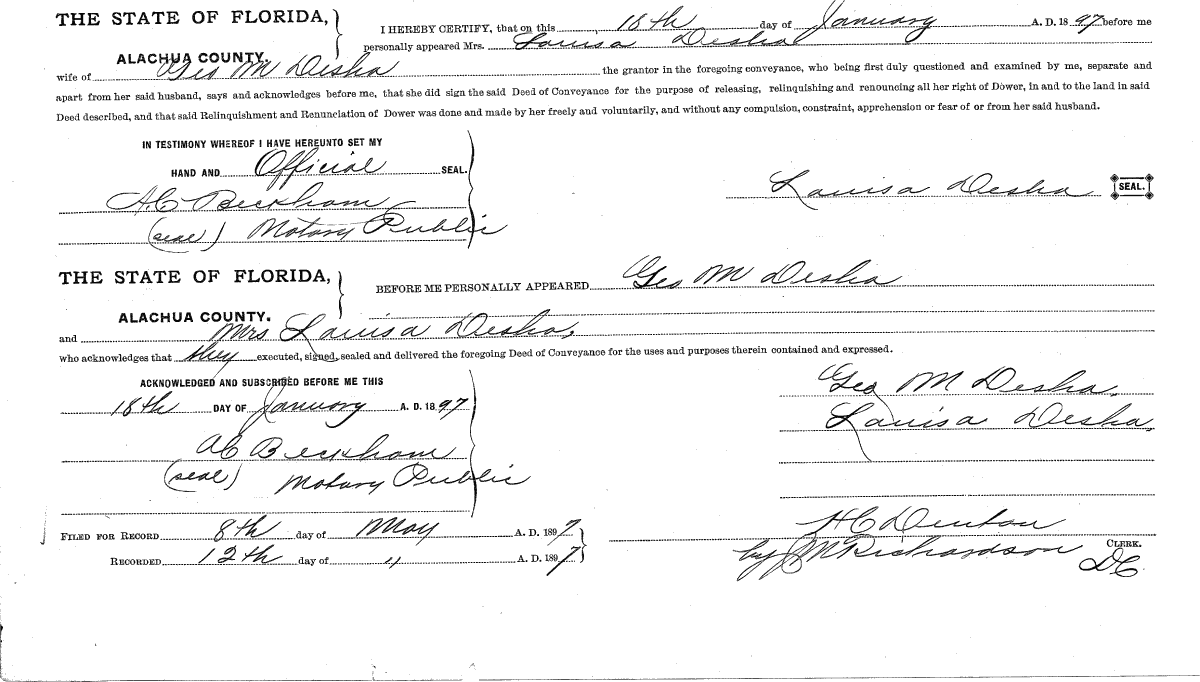 THE STATE OF FLORIDA,
ALACHUA COUNTY.
I HEREBY CERTIFY, that on this 18th day of January A. D. 1897 before me
personally appeared Mrs. Louisa Desha
wife of Geo M Desha the grantor in the foregoing conveyance, who being first duly questioned and examined by me, separate and
apart from her said husband, says and acknowledges before me, that she did sign the said Deed of Conveyance for the purpose of releasing, relinquishing and renouncing all her right of Dower, in and to the land in said
Deed described, and that said Relinquishment and Renunciation of Dower was done and made by her freely and voluntarily, and without any compulsion, constraint, apprehension or fear of or from her said husband.
IN TESTIMONY WHEREOF I HAVE HEREUNTO SET MY
HAND AND Official SEAL.
A.C Beckham
(seal) Notary Public
Louisa Desha SEAL.
THE STATE OF FLORIDA,
ALACHUA COUNTY.
BEFORE ME PERSONALLY APPEARED Geo M Desha
and Mrs Louisa Desha,
who acknowledges that they executed, signed, sealed and delivered the foregoing Deed of Conveyance for the uses and purposes therein contained and expressed.
ACKNOWLEDGED AND SUBSCRIBED BEFORE ME THIS
18th DAY OF January A. D. 1897
AC Beckham
(seal) Notary Public
Geo M Desha,
Louisa Desha,
FILED FOR RECORD 8th day of May A. D. 1897
RECORDED 12th day of " A. D. 1897
H C Denton
CLERK.
by J M Richardson DC